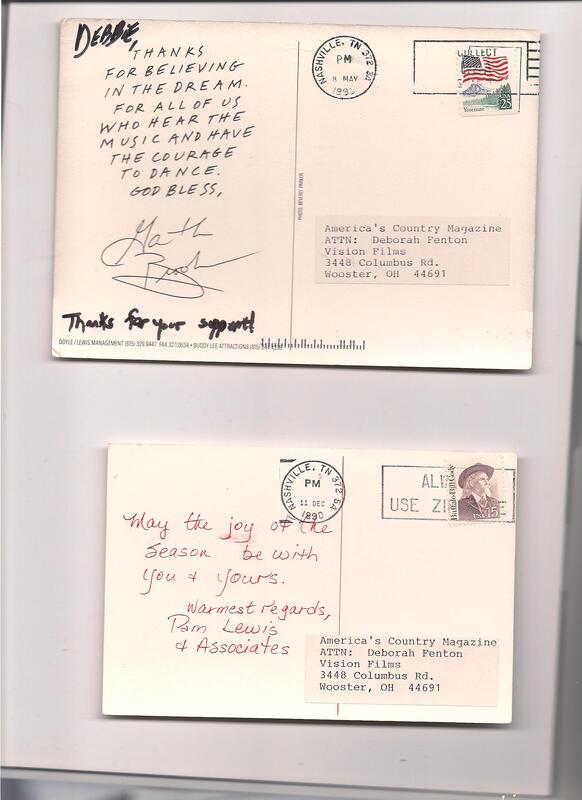 DEBBIE,
THANKS
FOR BELIEVING
IN THE DREAM.
FOR ALL OF US
WHO HEAR THE
MUSIC AND HAVE
THE COURAGE
TO DANCE.
GOD BLESS,
Garth
Brooks
Thanks for your support!
DOYLE / LEWIS MANAGEMENT (615) 329.9447 FAX 321.0534 • BUDDY LEE ATTRACTIONS (615)
PHOTO: BEVERLY PARKER
NASHVILLE, TN 372
PM
8 MAY
1990
COLLECT
Yosemite
25
America's Country Magazine
ATTN: Deborah Fenton
Vision Films
3448 Columbus Rd.
Wooster, OH 44691
NASHVILLE, TN 372
PM
11 DEC
1990
USE
Buffalo Bill Cody
USA 15
May the joy of the
Season be with
You & Yours.
Warmest regards,
Pam Lewis
& Associates
America's Country Magazine
ATTN: Deborah Fenton
Vision Films
3448 Columbus Rd.
Wooster, OH 44691